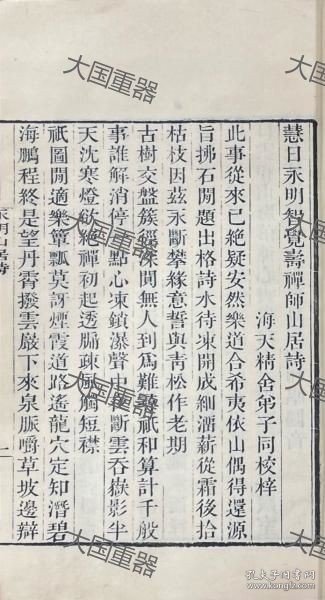 慧日永明智覺壽禪師山居詩
海天精舍弟子同校梓
此事從來已絕疑安然樂道合希夷依山偶得還源
旨拂石閒題出格詩水待凍開成細溜薪從霜後拾
枯枝因茲永斷攀緣意誓與青松作老期
古樹交盤簇徑深閒無人到為難尋祇和算計千般
事誰解消停一點心凍鎖瀑聲中夜斷雲吞嶽影半
天沈寒燈欲絕禪初起透牖疎風觸短襟
祇圖閒適樂簞瓢莫訝煙霞道路遙龍穴定知潛碧
海鵬程終是望丹霄撥雲巖下來泉脈嚼草坡邊辯
永明山居詩
一
大国重器
大国重器
大国重器
大国重器
大国重器
孔夫子旧书网